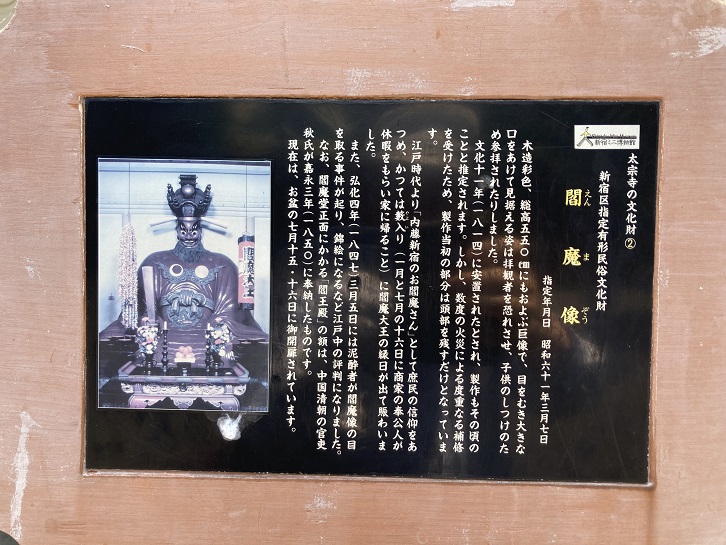 新宿ミニ博物館
太宗寺の文化財②
新宿区指定有形民俗文化財
閻魔像
えんまぞう
指定年月日　昭和六十一年三月七日
木造彩色、総高五五〇㎝にもおよぶ巨像で、目をむき大きな
口をあけて見据える姿は拝観者を恐れさせ、子供のしつけのた
め参拝されたりしました。
文化十一年(一八一四)に安置されたとされ、製作もその頃の
ことと推定されます。しかし、数度の火災による度重なる補修
を受けたため、製作当初の部分は頭部を残すだけとなっていま
す。
江戸時代より「内藤新宿のお閻魔さん」として庶民の信仰をあ
つめ、かつては藪入り(一月と七月の十六日に商家の奉公人が
休暇をもらい家に帰ること)に閻魔大王の縁日が出て賑わいま
した。
また、弘化四年(一八四七)三月五日には泥酔者が閻魔像の目
を取る事件が起り、錦絵になるなど江戸中の評判になりました。
なお、閻魔堂正面にかかる「閻王殿」の額は、中国清朝の官吏
秋氏が嘉永三年(一八五〇)に奉納したものです。
現在は、お盆の七月十五・十六日に御開扉されています。